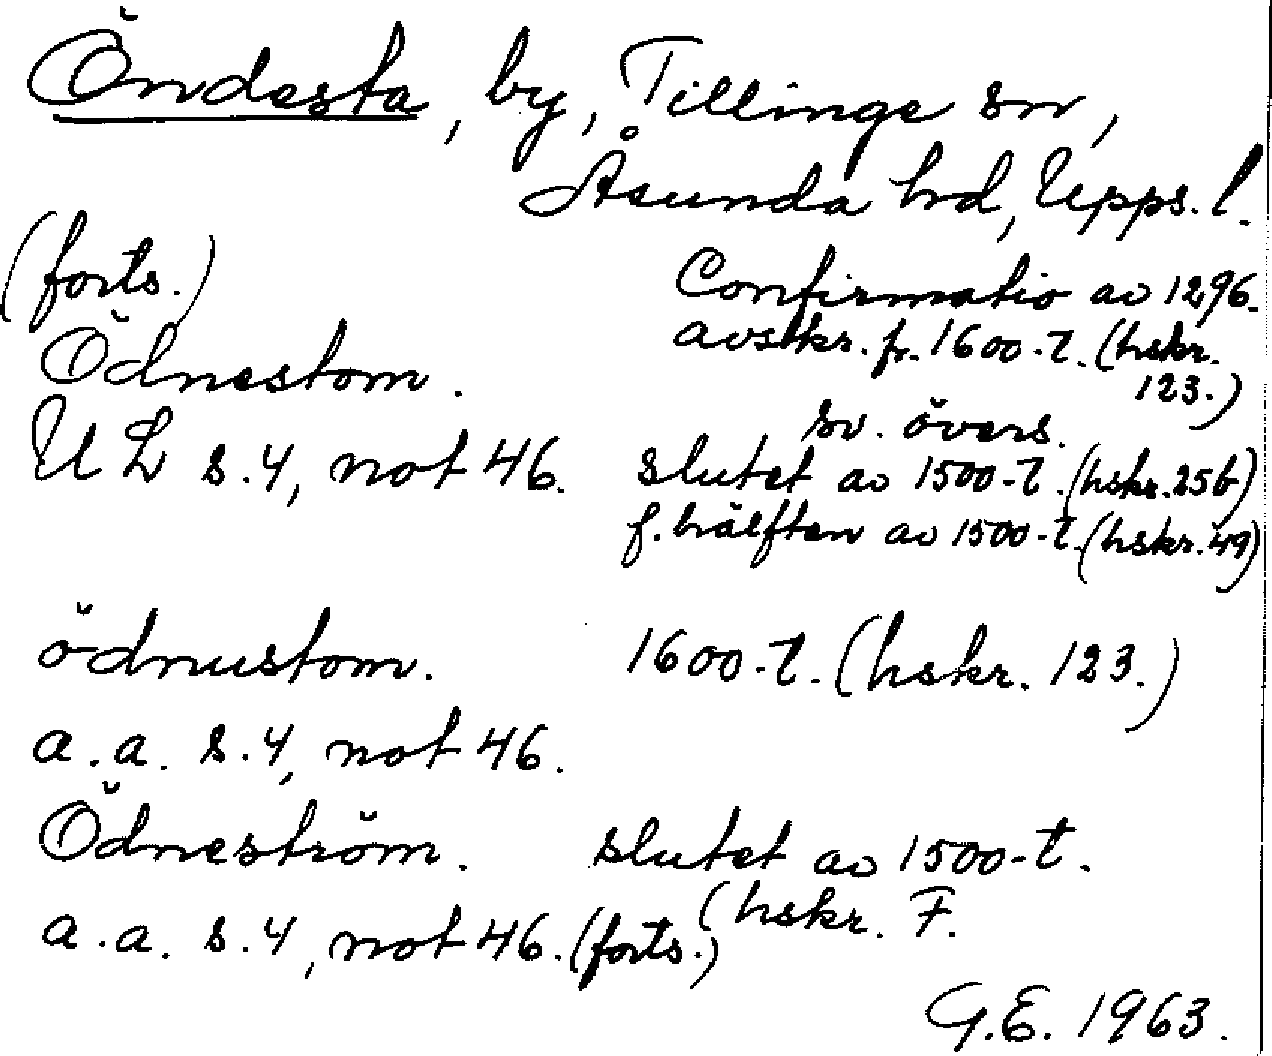 Öndesta, by, Tillinge sn,
Åsunda hrd, Upps. l.
(forts.)
Confirmatio av 1296.
avskr. fr. 1600-t. (hskr.
123.)
Ödnestom.
sv. övers.
UL s.4, not 46. slutet av 1500-t. (hskr. 25b)
f. hälften av 1500-t. (hskr. 49)
ödnustom. 1600-t. (hskr. 123.)
a.a. s.4, not 46.
Ödneström. slutet av 1500-t.
(hskr. F.
a.a. s.4, not 46. (forts.)
G.E. 1963.